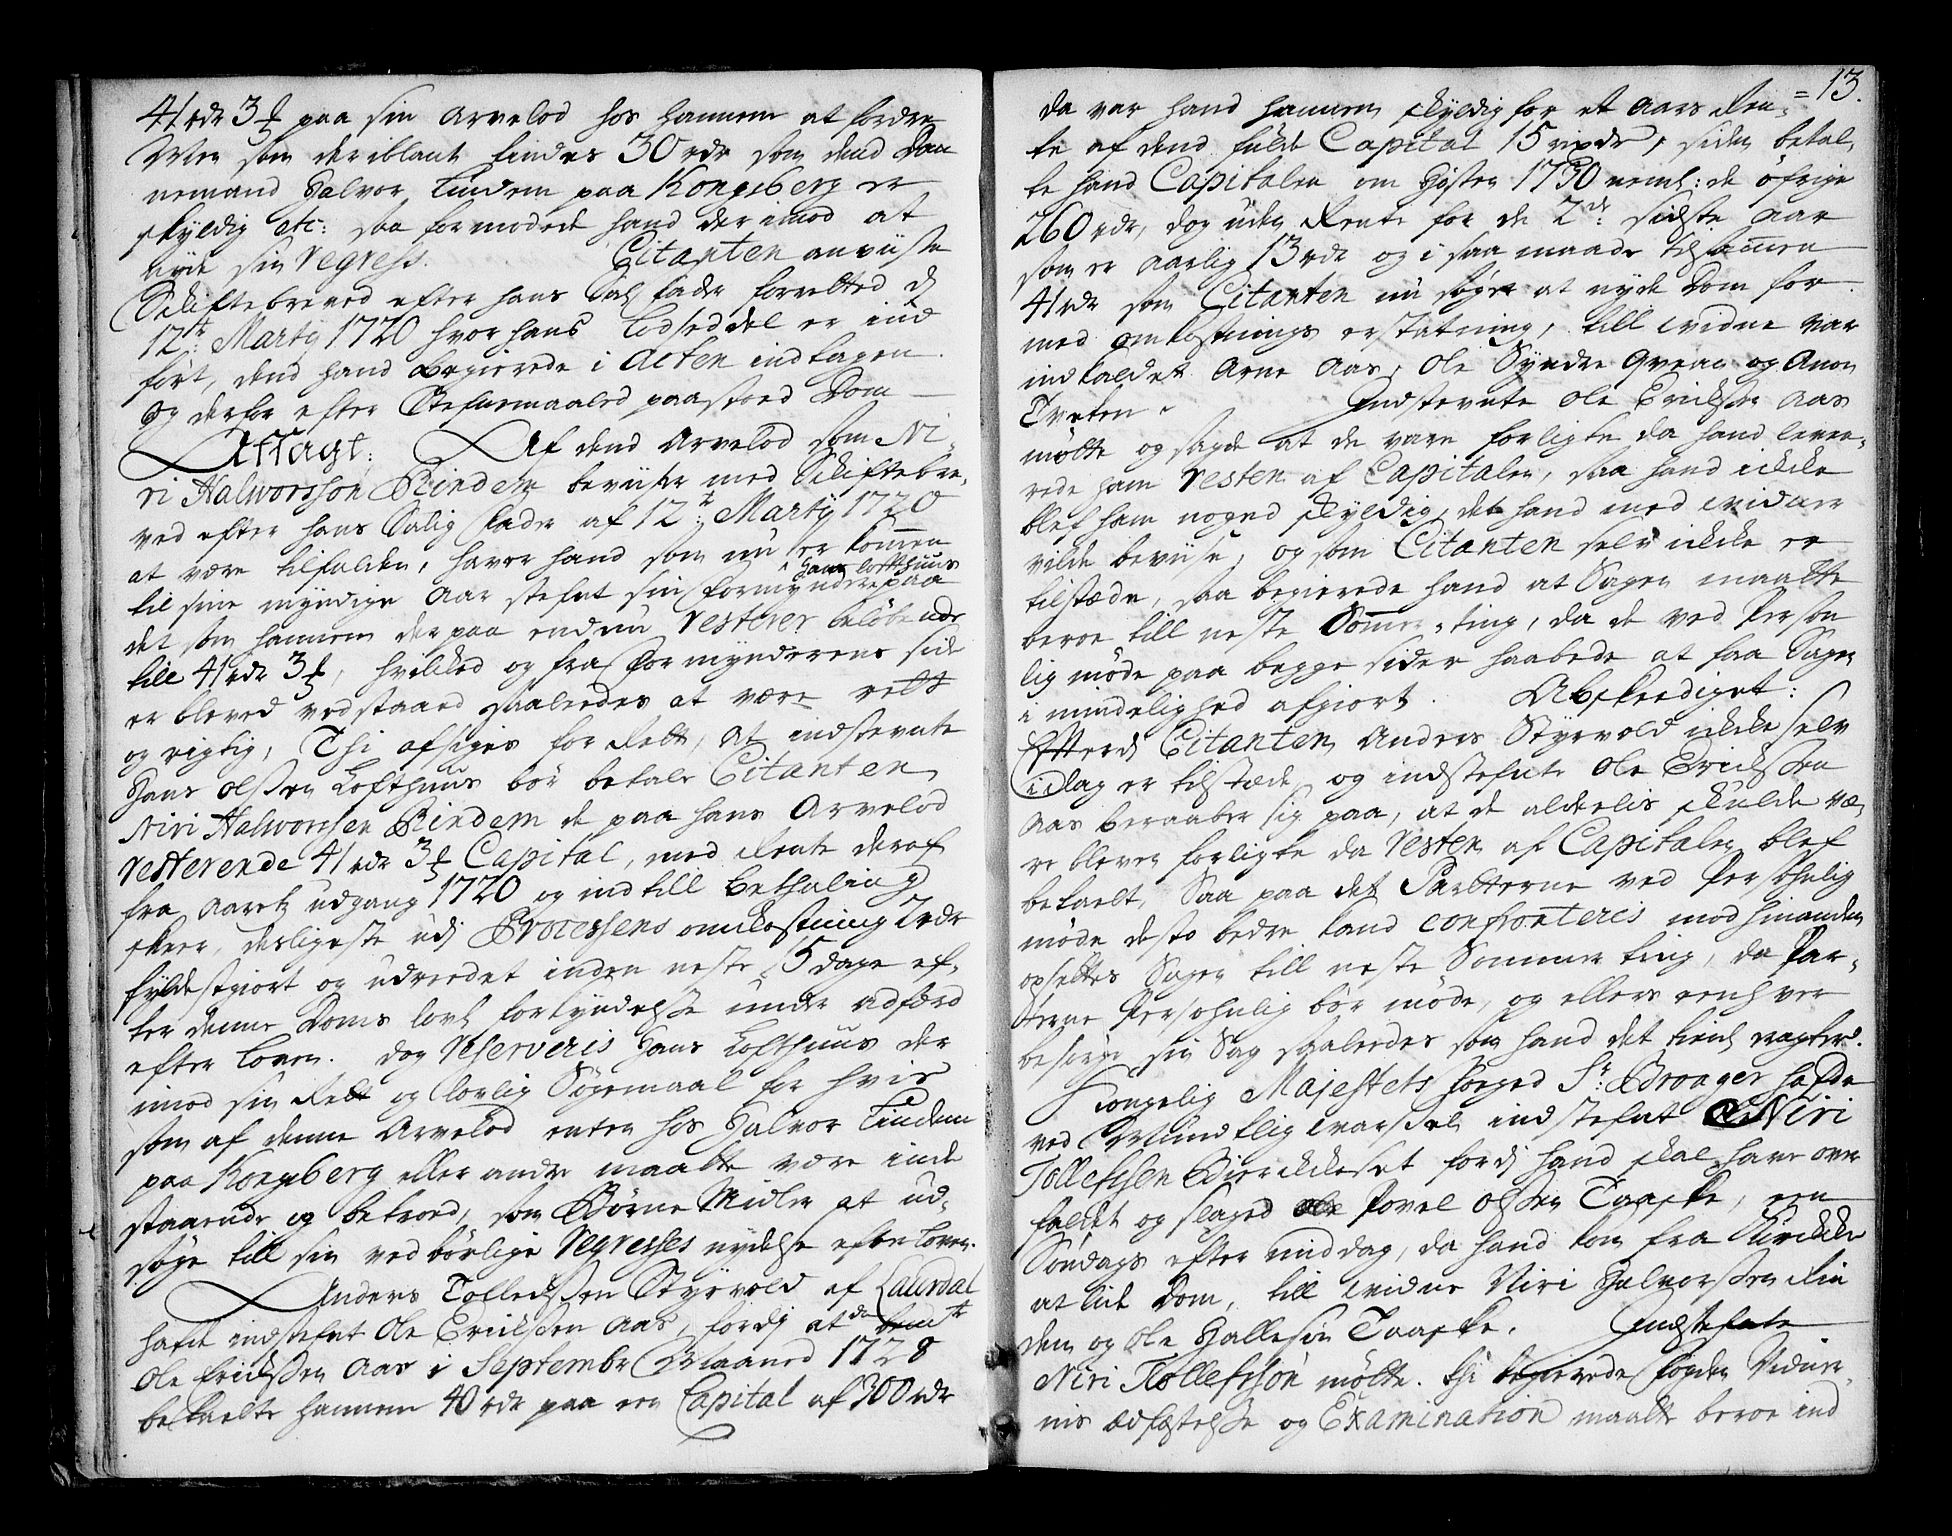 41 rdr 3 ß paa sin Arvelod hos hannem at fordre
Men som deriblant findes 30 rdr som dend Dan
nemand Halvor Tindem paa Kongsberg er
skyldig etc: saa formodede hand derimod at
nyde sin Regress. Citanten anviiste
Skiftebreved efter hans Sal: fader forretted d
12te Marty 1720 hvor hans Lodseddel er ind
ført, dend hand begierede i Acten indtagen
og derfor efter Stefnemaaled paastoed Dom
Affsagt: Af dend Arvelod som Ni-
ri Halworsson Rindem beviiser med Skiftebre-
ved efter hans Salig fader af 12te Marty 1720
at være tilfalden, haver hand som nu er kommen
til sine myndige Aar stefnt sin formyndere Hans Lofthuus paa
det som hannem derpaa endnu Resterer beløbende
till 41 rdr 3 ß, hvilked og fra Formynderens side
er bleved vedstaaed saaledes at være rett
og rigtig, Thi afsiges for Rett, at indstevnte
Hans Olssen Lofthuus bør betale Citanten
Niri Halworssen Rindem de paa hans Arvelod
Resterende 41 rdr 3 ß Capital, med Rente deraf
fra Aarets udgang 1720 og indtill bethaling
skeer, desligeste udj Processens omkostning 2 rdr
fyldestgiort og udreedet inden neste 15 dage ef-
ter denne Doms lovl: forkyndelsse under adfærd
efter Loven. Dog Reserveris Hans Lofthuus der
imod sin Rett og lovlig Søgemaal for hvis
som af denne Arvelod enten hos Halvor Tindem
paa Kongsberg eller andre maatte være inde
staaende og betroed, som Børne Midler at ud-
søge till sin vedbørlige Regresses nydelse efter Loven.
Anders Tollefssen Styrvold af Laurdal
hafde indstefnt Ole Erichssen Aas, fordj at da
Ole Erichssen Aas i Septembr Maaned 1728
betaelte hannem 40 rdr paa een Capital af 300 rdr
= 13.
da var hand hannem skyldig for et Aars Ren-
te af dend fulde Capital 15 rixdr, siden betal-
te hand Capitalen om Høsten 1730 neml: de øfrige
260 rdr, dog uden Rente for de 2de sidste aar
som er aarlig 13 rdr og i saa maade tilsammen
41 rdr som Citanten nu søger at nyde Dom for
med omkostnings erstatning, till widne var
indkaldet Arne Aas, Ole Syndre Qveen og Anon
Tveten. Indstevnte Ole Erichssen Aas
mötte og sagde at de vare forligte da hand leve-
rede ham Resten af Capitalen, saa hand ickke
blef ham noged skyldig, det hand med widner
vilde beviise, og som Citanten selv ickke er
tilstæde, saa begierede hand at Sagen maatte
beroe till neste Sommer-ting, da de ved Person
lig møde paa begge sider haabede at faa Sagen
i mindelighed afgiort. Afskeediget:
Efterdj Citanten Anders Styrvold ickke selv
i Dag er tilstæde, og indstefnte Ole Erichssen
Aas beraaber sig paa, at de alderlis skulde væ-
re bleven forligte da Resten af Capitalen blef
betaelt, Saa paa det Parterne ved Personlig
møde desto bedre kand confronteris mod hinanden
opsettes Sagen till neste Sommer ting, da Par-
terne Persohnlig bør møde, og ellers eenhver
besørge sin Sag saaledes som hand det tienl: ragter.
Kongelig Majestets foged Sr: Broager hafde
ved Mundtlig warssel indstefnt Niri
Tollefssen Bierckeset fordj hand skal have over
faldet og slaged Povel Olssen Taaske, een
Søndags eftermiddag, da hand kom fra Kircke
at lide Dom, till widne Niri Halvorssen Rin
dem og Ole Hallesøn Taaske. Indstefnte
Niri Tollefssøn mötte. Thi begierede fogden Vidner-
nis Edfæstelsse og Examination maatte beroe ind